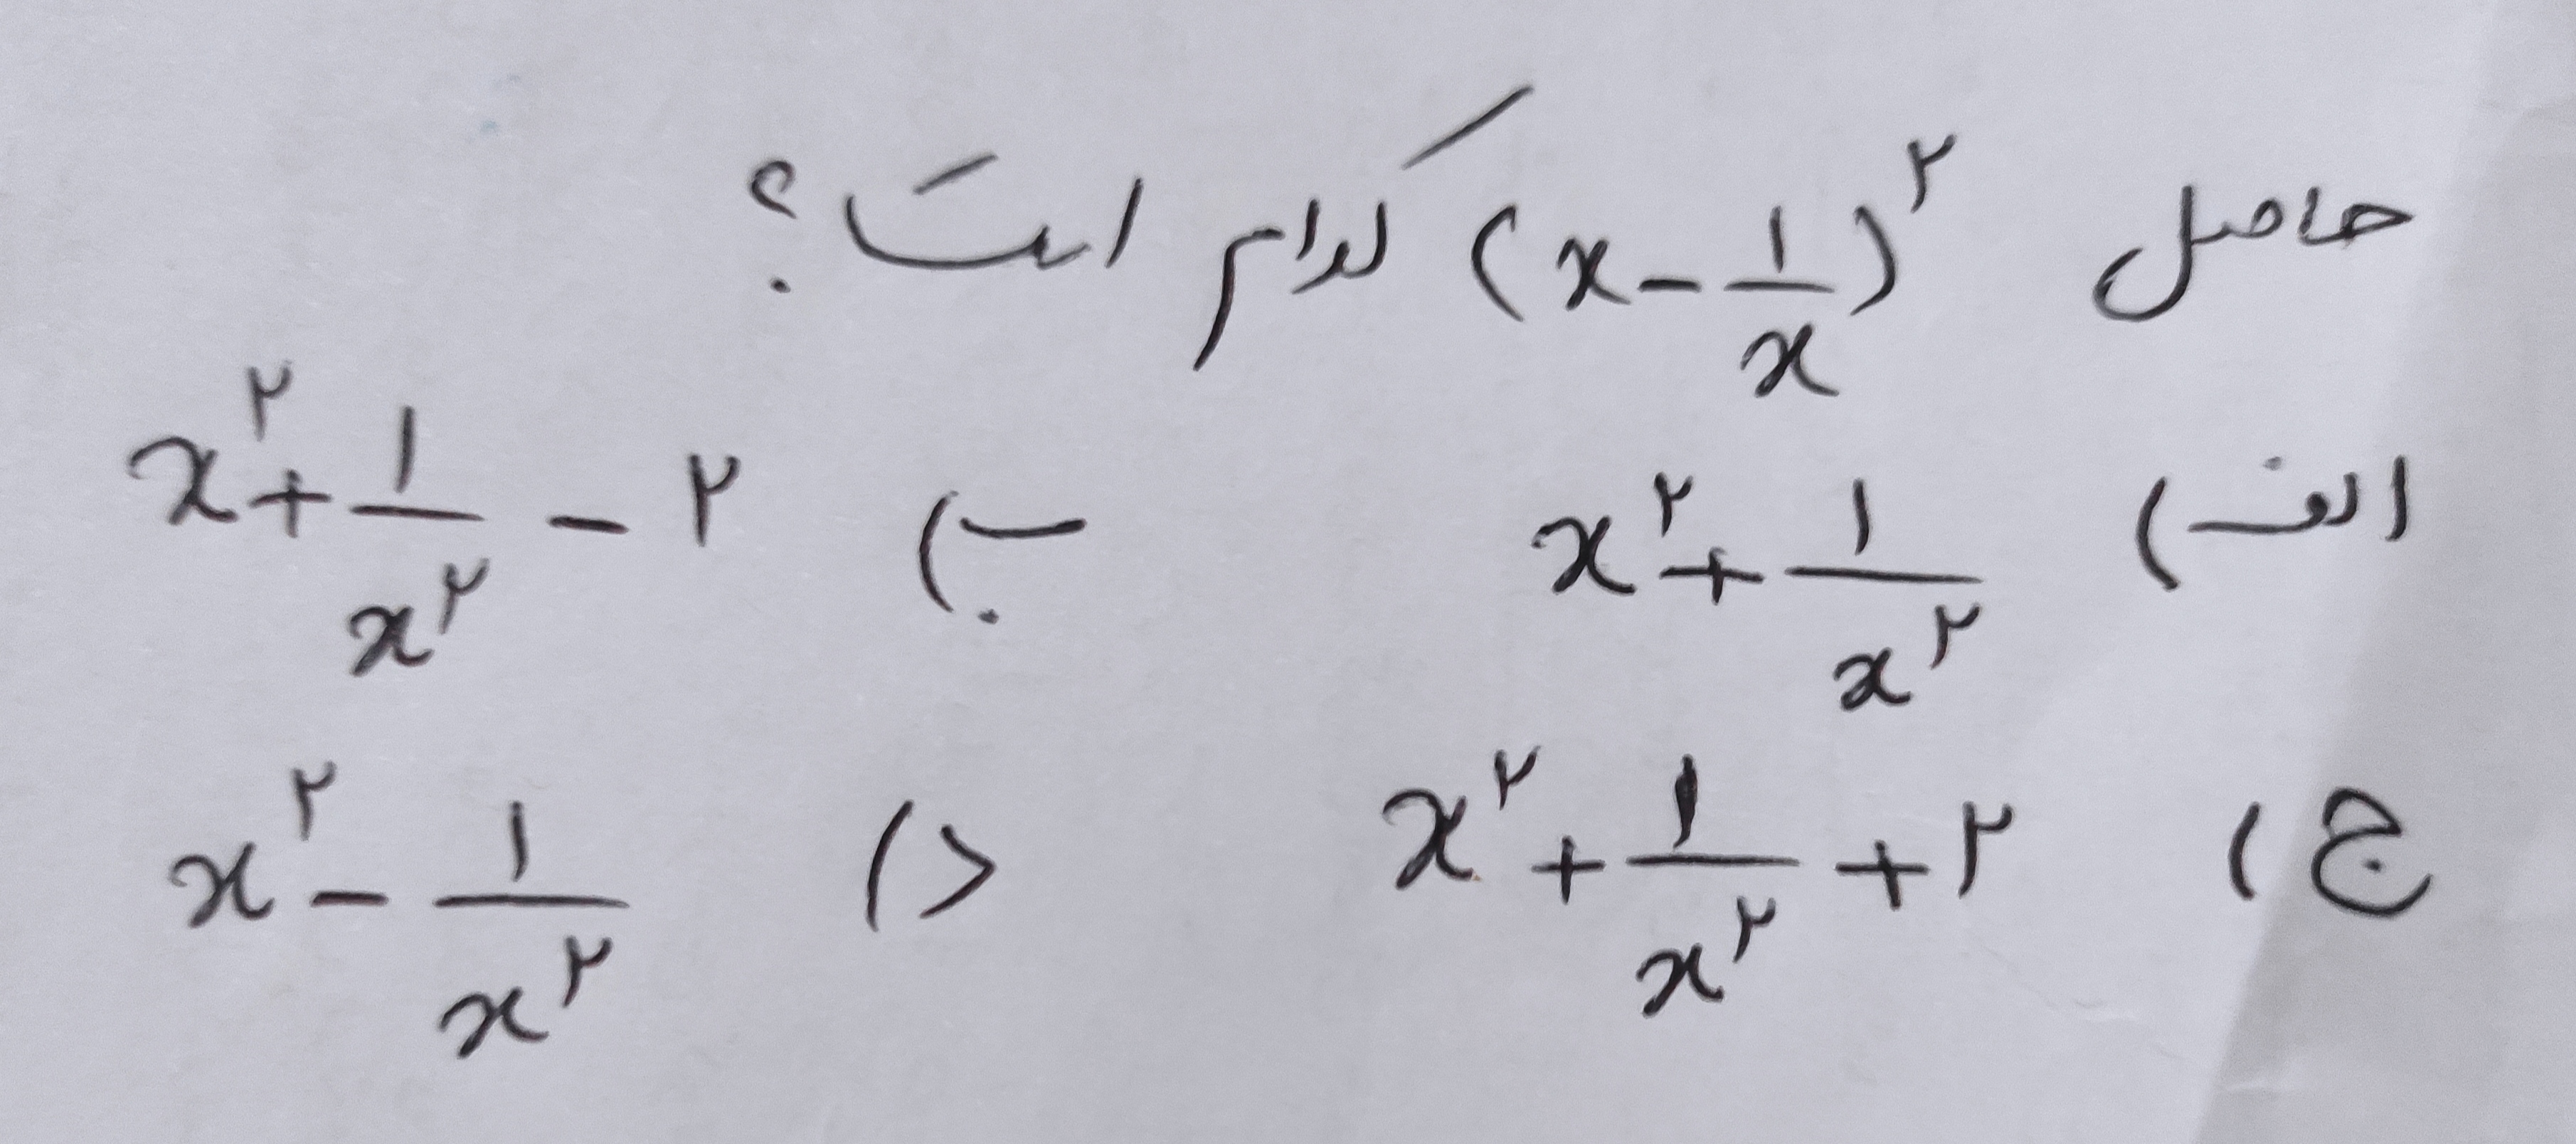 حاصل (x - ۱/x)^۲ کدام است؟
الف) x^۲ + ۱/x^۲ ب) x^۲ + ۱/x^۲ - ۲
ج) x^۲ + ۱/x^۲ + ۲ د) x^۲ - ۱/x^۲